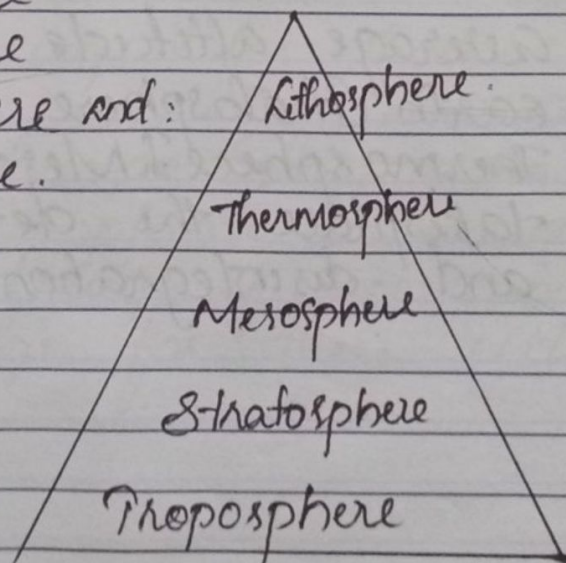 e
re and:
e.
Lithosphere
Thermosphere
Mesosphere
Stratosphere
Troposphere